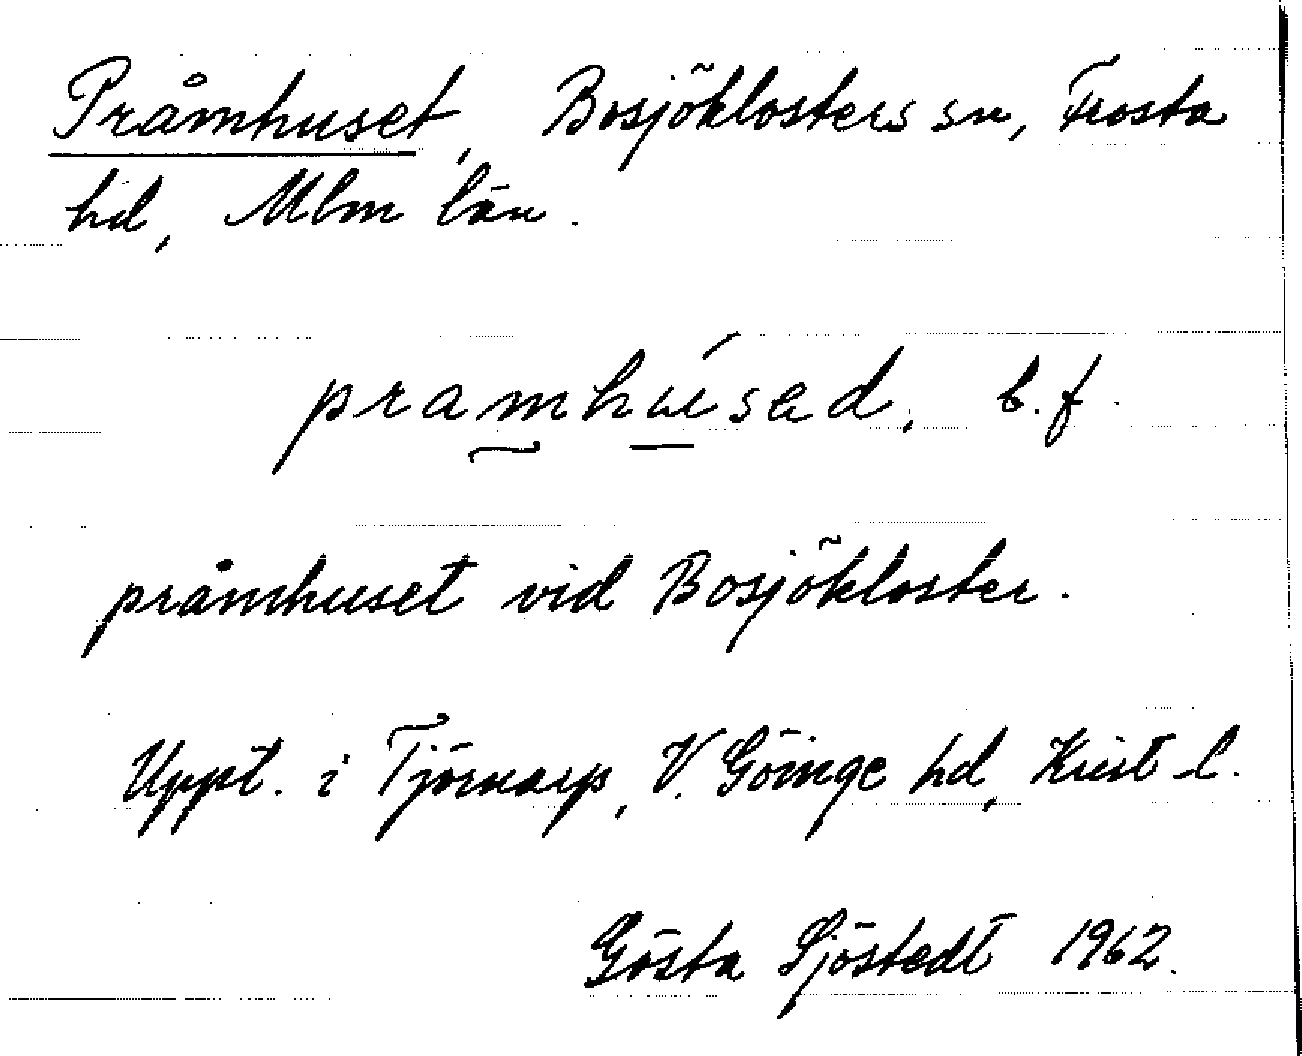 Pråmhuset, Bosjöklosters sn, Frosta
hd, Mlm län.
pramhúsad, b.f.
pråmhuset vid Bosjökloster.
Uppt. i Tjörnarp, V. Göinge hd, Krist l.
Gösta Sjöstedt 1962.